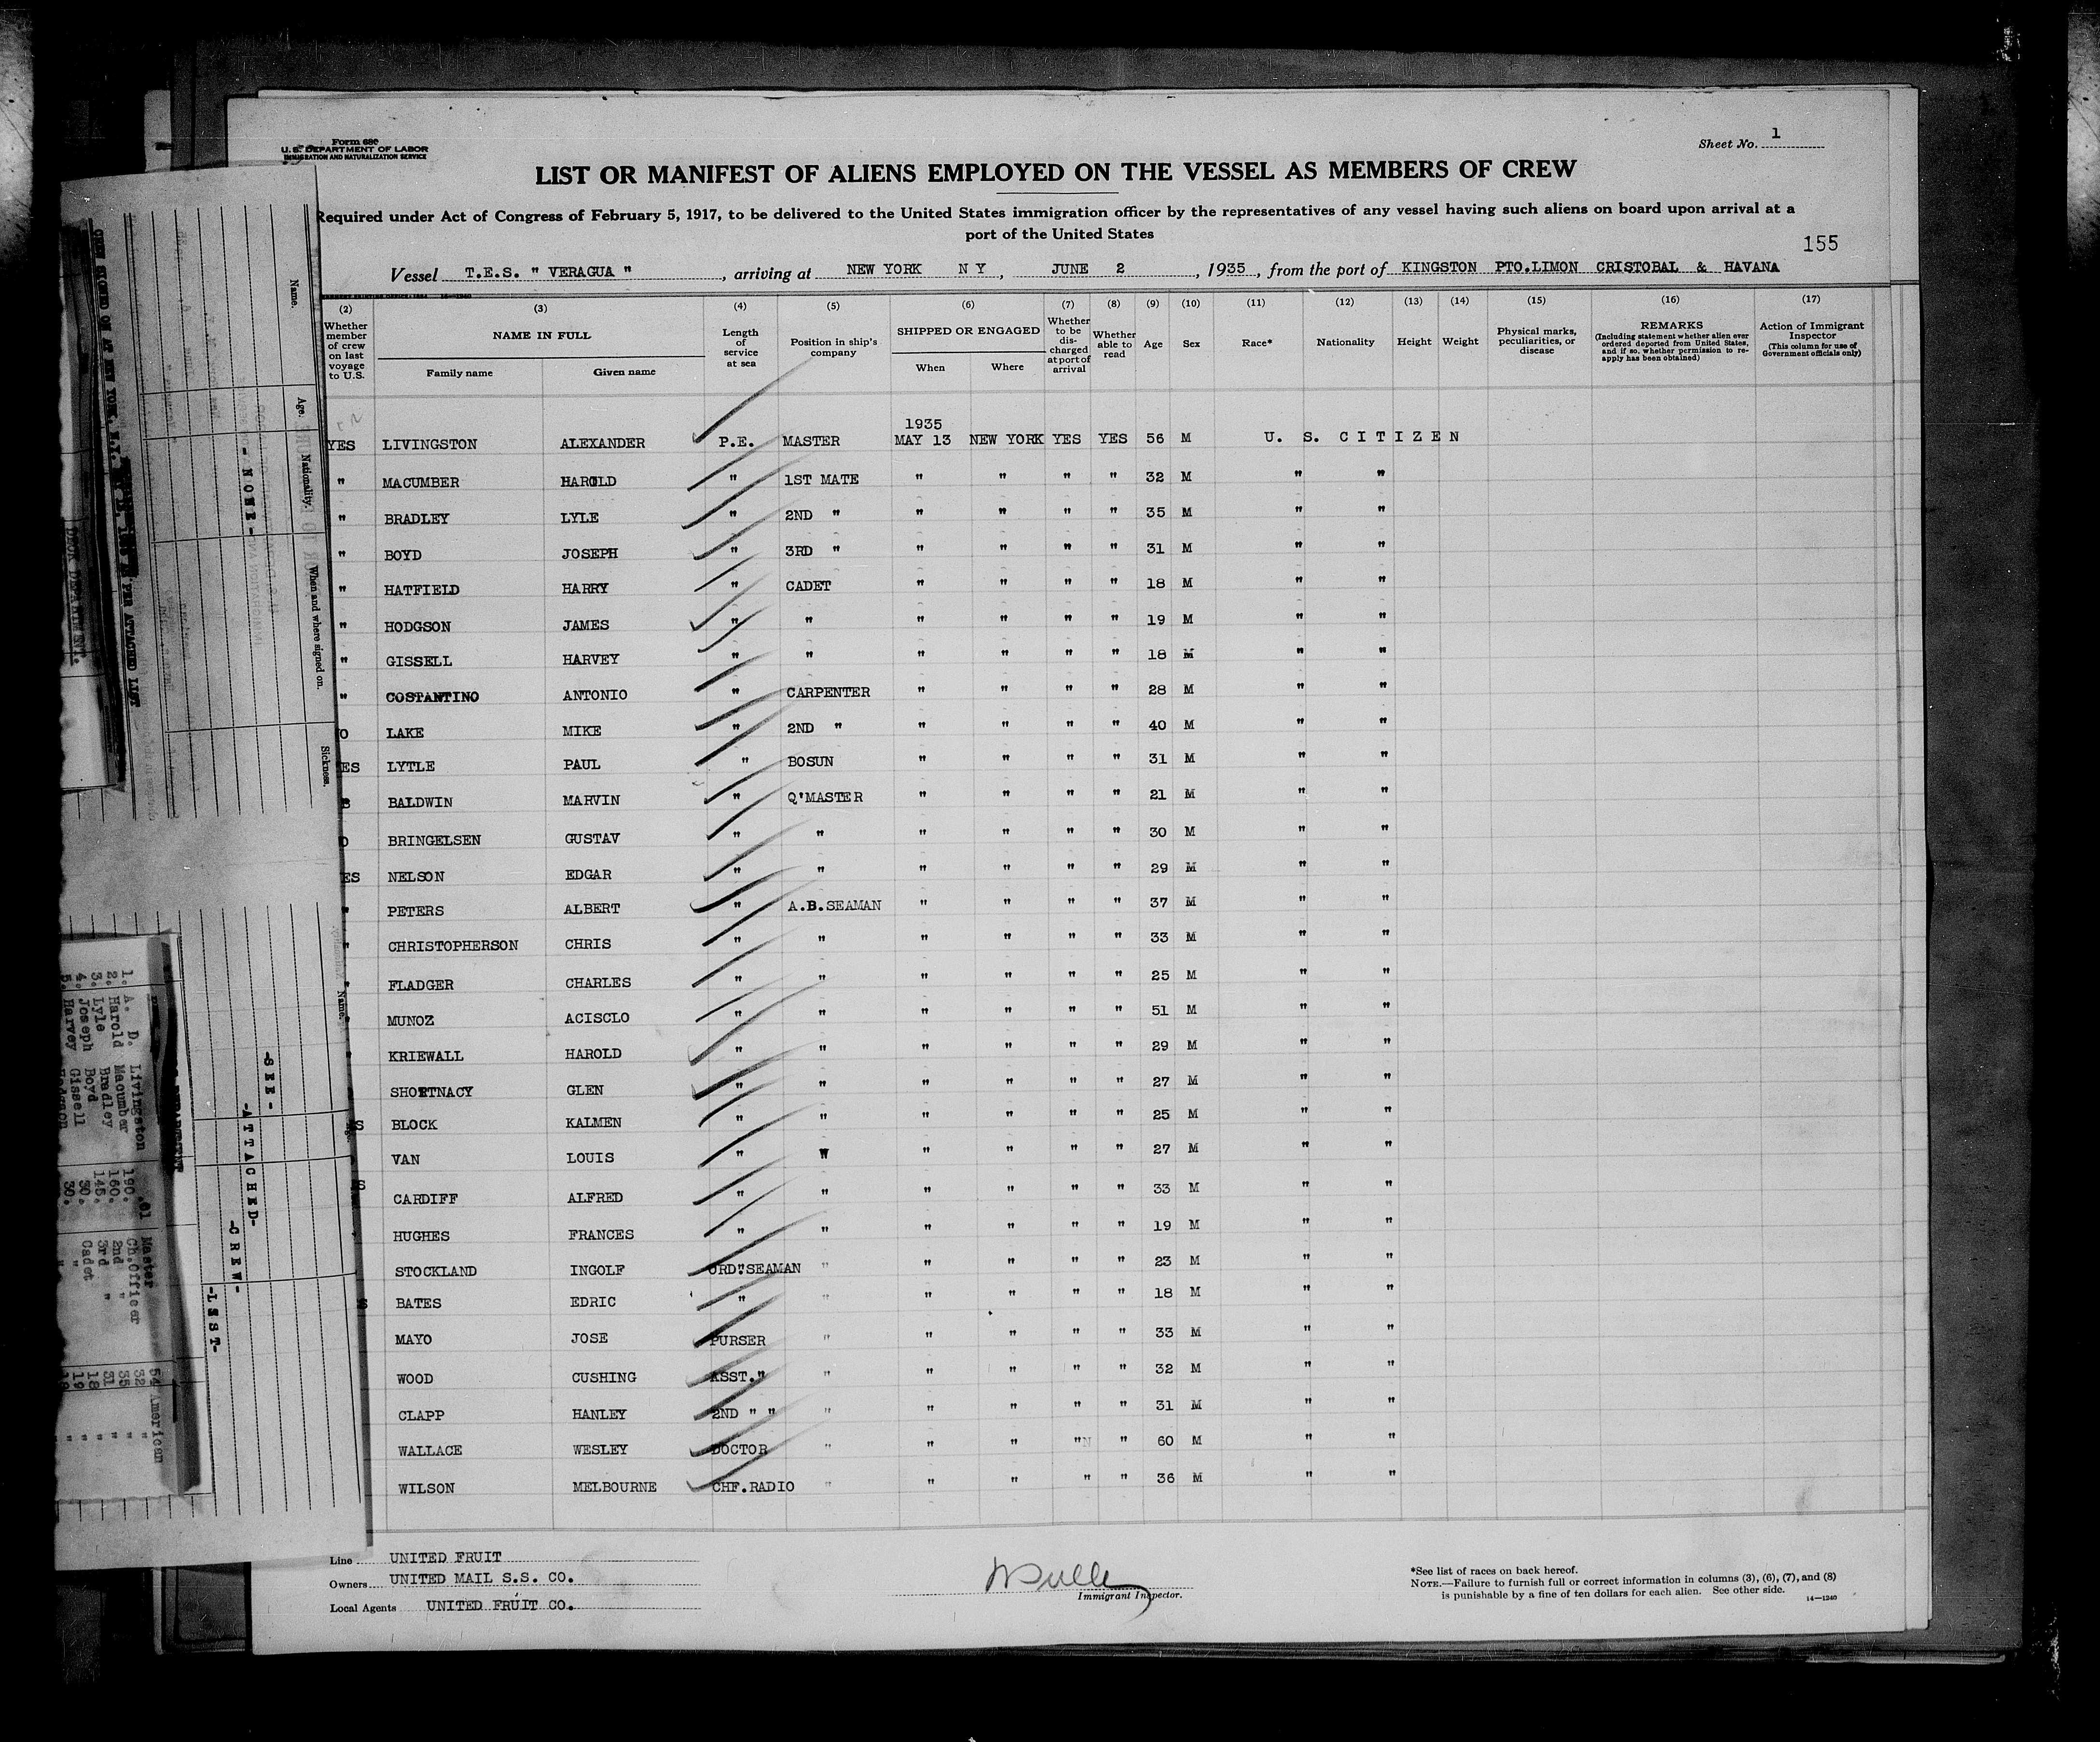 Form 680
U. S. DEPARTMENT OF LABOR
IMMIGRATION AND NATURALIZATION SERVICE
Sheet No. 1
LIST OR MANIFEST OF ALIENS EMPLOYED ON THE VESSEL AS MEMBERS OF CREW
Required under Act of Congress of February 5, 1917, to be delivered to the United States immigration officer by the representatives of any vessel having such aliens on board upon arrival at a
port of the United States
155
Vessel T.E.S. " VERAGUA ", arriving at NEW YORK N Y, JUNE 2, 1935, from the port of KINGSTON PTO.LIMON CRISTOBAL & HAVANA
(2) (3) (4) (5) (6) (7) (8) (9) (10) (11) (12) (13) (14) (15) (16) (17)
Whether member of crew on last voyage to U.S. NAME IN FULL Family name Given name Length of service at sea Position in ship's company SHIPPED OR ENGAGED When Where Whether to be discharged at port of arrival Whether able to read Age Sex Race* Nationality Height Weight Physical marks, peculiarities, or disease REMARKS (Including statement whether alien ever ordered deported from United States, and if so, whether permission to reapply has been obtained) Action of Immigrant Inspector (This column for use of Government officials only)
1935
YES LIVINGSTON ALEXANDER P.E. MASTER MAY 13 NEW YORK YES YES 56 M U. S. CITIZEN
" MACUMBER HAROLD " 1ST MATE " " " " 32 M " "
" BRADLEY LYLE " 2ND " " " " " 35 M " "
" BOYD JOSEPH " 3RD " " " " " 31 M " "
" HATFIELD HARRY " CADET " " " " 18 M " "
" HODGSON JAMES " " " " " " 19 M " "
" GISSELL HARVEY " " " " " " 18 M " "
" COSTANTINO ANTONIO " CARPENTER " " " " 28 M " "
O LAKE MIKE " 2ND " " " " " 40 M " "
ES LYTLE PAUL " BOSUN " " " " 31 M " "
S BALDWIN MARVIN " Q'MASTER " " " " 21 M " "
O BRINGELSEN GUSTAV " " " " " " 30 M " "
ES NELSON EDGAR " " " " " " 29 M " "
" PETERS ALBERT " A.B.SEAMAN " " " " 37 M " "
" CHRISTOPHERSON CHRIS " " " " " " 33 M " "
" FLADGER CHARLES " " " " " " 25 M " "
" MUNOZ ACISCLO " " " " " " 51 M " "
" KRIEWALL HAROLD " " " " " " 29 M " "
SHORTNACY GLEN " " " " " " 27 M " "
S BLOCK KALMEN " " " " " " 25 M " "
VAN LOUIS " " " " " " 27 M " "
S CARDIFF ALFRED " " " " " " 33 M " "
HUGHES FRANCES " " " " " " 19 M " "
STOCKLAND INGOLF ORD.SEAMAN " " " " " 23 M " "
S BATES EDRIC " " " " " " 18 M " "
MAYO JOSE PURSER " " " " " 33 M " "
WOOD CUSHING ASST." " " " " " 32 M " "
CLAPP HANLEY 2ND " " " " " " " 31 M " "
WALLACE WESLEY DOCTOR " " " " " 60 M " "
WILSON MELBOURNE CHF.RADIO " " " " " 36 M " "
Line UNITED FRUIT
Owners UNITED MAIL S.S. CO.
Local Agents UNITED FRUIT CO.
Immigrant Inspector.
*See list of races on back hereof.
NOTE.—Failure to furnish full or correct information in columns (3), (6), (7), and (8)
is punishable by a fine of ten dollars for each alien. See other side.
14—1240
Name. Age. Nationality. When and where signed on. Sickness.
-NONE-
DECK DEPARTMENT.
Name.
-SEE-
-ATTACHED-
-CREW-
-LSST-
1. A. D. Livingston 190. Master 54 American
2. Harold Macumber 160. Ch.Officer 32 "
3. Lyle Bradley 145. 2nd " 35 "
4. Joseph Boyd 30. 3rd " 31 "
5. Harvey Gissell 30. Cadet 18 "